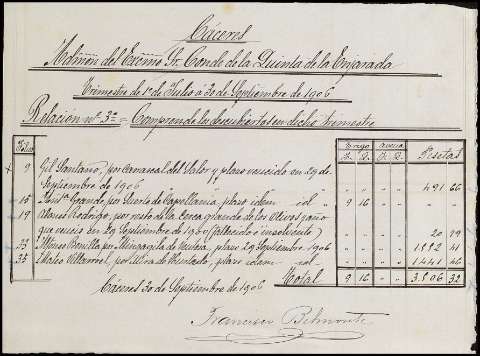 Cáceres
Admon del Excmo Sr. Conde de la Quinta de la Enjarada
Trimestre de 1º de Julio á 30 de Septiembre de 1906
Relación nº 3º = Comprende los descubiertos en dicho trimestre
Folio Trigo Avena Pesetas
9 Gil Santano, por Carrascal del Valor y plazo vencido en 29 de
Septiembre de 1906 " " " " 491 66
15 Grande, por Suerte de Capellanía, plazo idem id " 9 16 " " " "
19 Rodrigo, por resto de la Cerca grande de los Olivos y año
que vencio en 29 Septiembre de 1906 (fallecido é insolvente) " " " " 20 79
33 Bonilla por plazo 29 Septiembre 1906 " " " " 1882 41
35 Mateo Villarroel, por plazo idem id " " " " 1441 46
Total 9 16 " " 3.806 32
Cáceres 30 de Septiembre de 1906
Francisco Belmonte